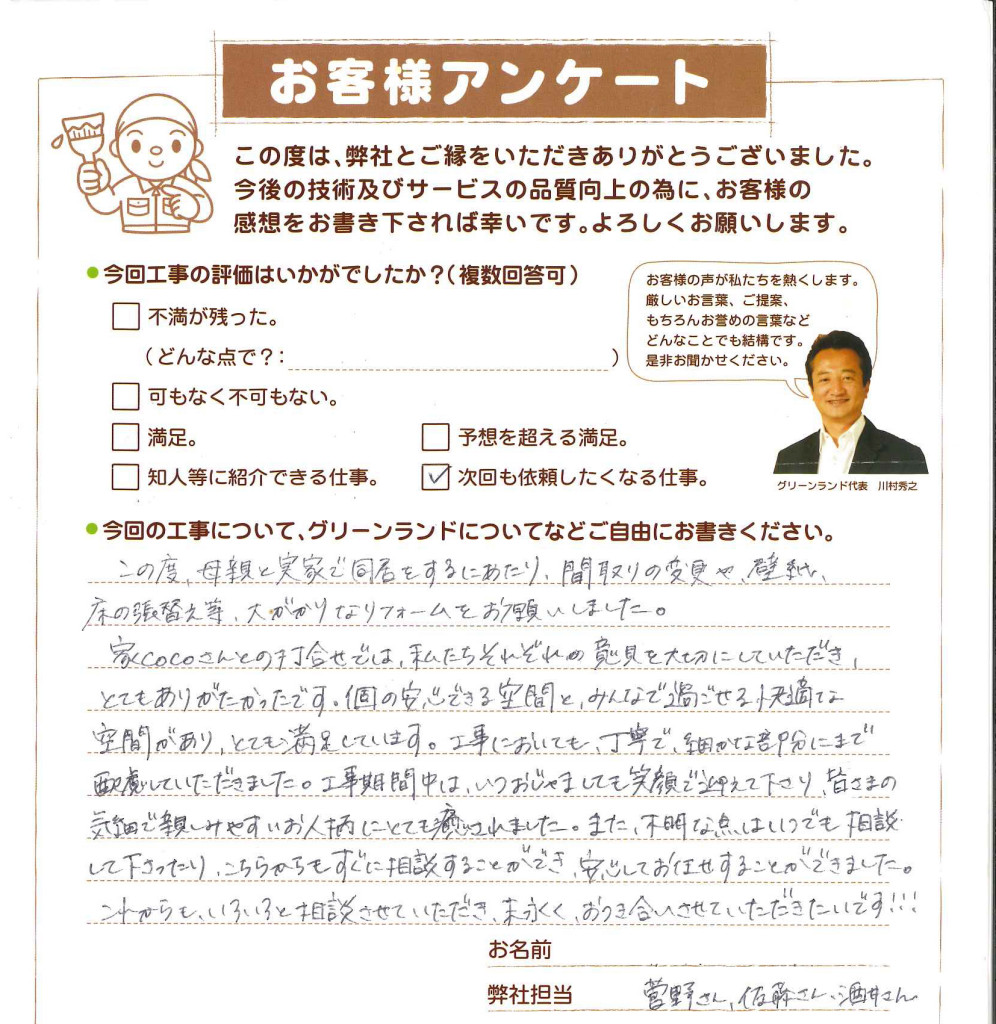 お客様アンケート
この度は、弊社とご縁をいただきありがとうございました。
今後の技術及びサービスの品質向上の為に、お客様の
感想をお書き下されば幸いです。よろしくお願いします。
●今回工事の評価はいかがでしたか？（複数回答可）
不満が残った。
（どんな点で？：　）
可もなく不可もない。
満足。
予想を超える満足。
知人等に紹介できる仕事。
次回も依頼したくなる仕事。
お客様の声が私たちを熱くします。
厳しいお言葉、ご提案、
もちろんお誉めの言葉など
どんなことでも結構です。
是非お聞かせください。
グリーンランド代表　川村秀之
●今回の工事について、グリーンランドについてなどご自由にお書きください。
この度、母親と実家で同居をするにあたり、間取りの変更や、壁紙、
床の張替え等、大がかりなリフォームをお願いしました。
家cocoさんとの打合せでは、私たちそれぞれの意見を大切にしていただき、
とてもありがたかったです。個の安心できる空間と、みんなで過ごせる快適な
空間があり、とても満足しています。工事においても、丁寧で、細かな部分にまで
配慮していただきました。工事期間中は、いつおじゃましても笑顔で迎えて下さり、皆さまの
気細で親しみやすいお人柄にとても癒されました。また、不明な点はいつでも相談
して下さったり、こちらからもすぐに相談することができ、安心してお任せすることができました。
これからも、いろいろと相談させていただき、末永く、おつき合いさせていただきたいです!!!
お名前
弊社担当　菅野さん、佐藤さん、酒井さん